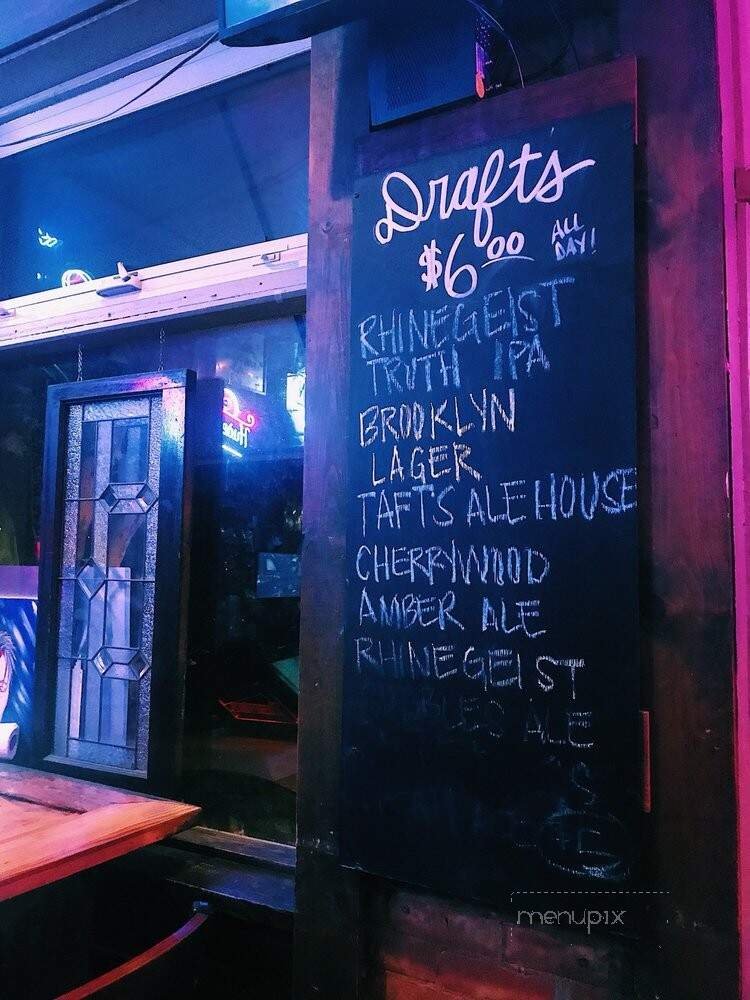 Drafts
$6.00 ALL DAY!
RHINEGEIST
TRUTH IPA
BROOKLYN
LAGER
TAFT'S ALE HOUSE
CHERRYWOOD
AMBER ALE
RHINEGEIST
ALE
menupix